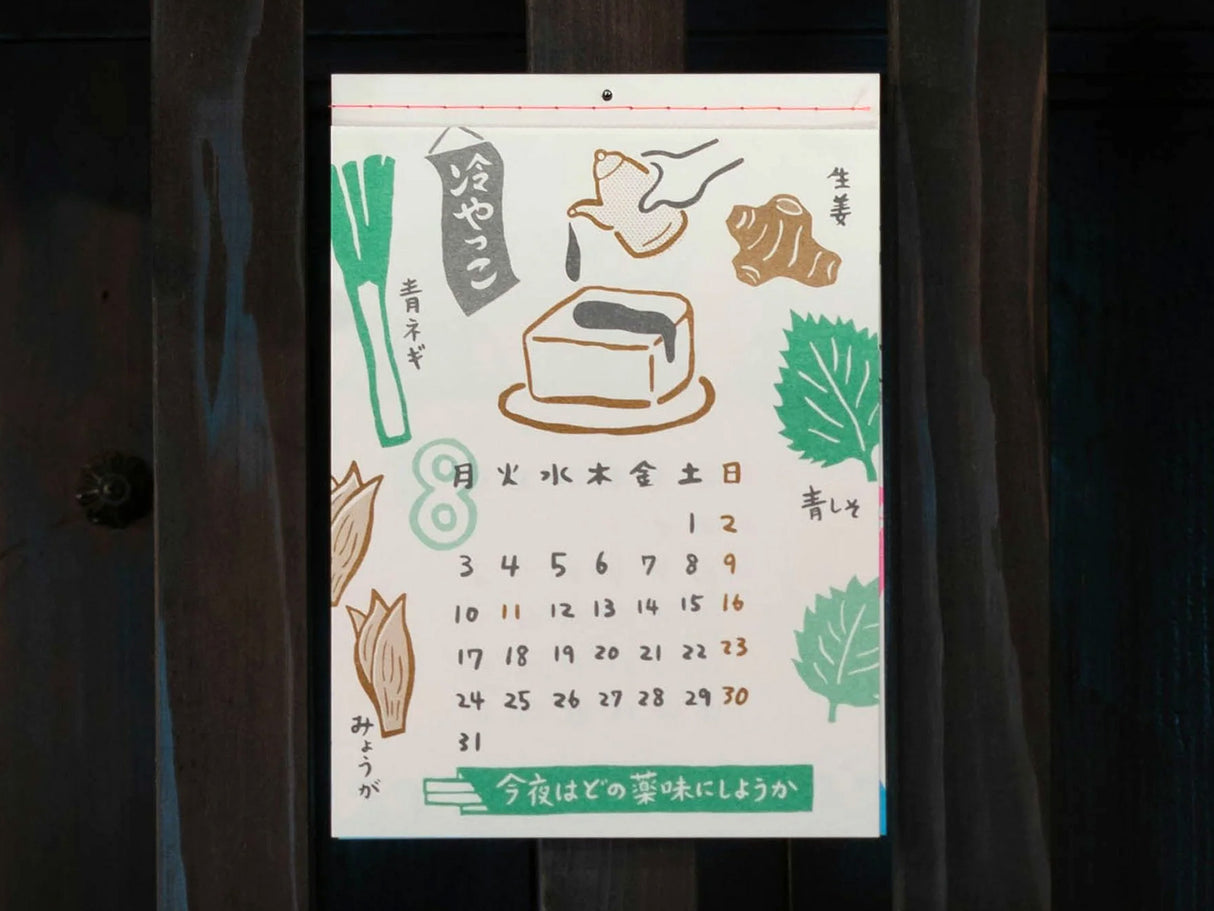 冷やっこ
生姜
青ネギ
青しそ
みょうが
8
月 火 水 木 金 土 日
1 2
3 4 5 6 7 8 9
10 11 12 13 14 15 16
17 18 19 20 21 22 23
24 25 26 27 28 29 30
31
今夜はどの薬味にしようか